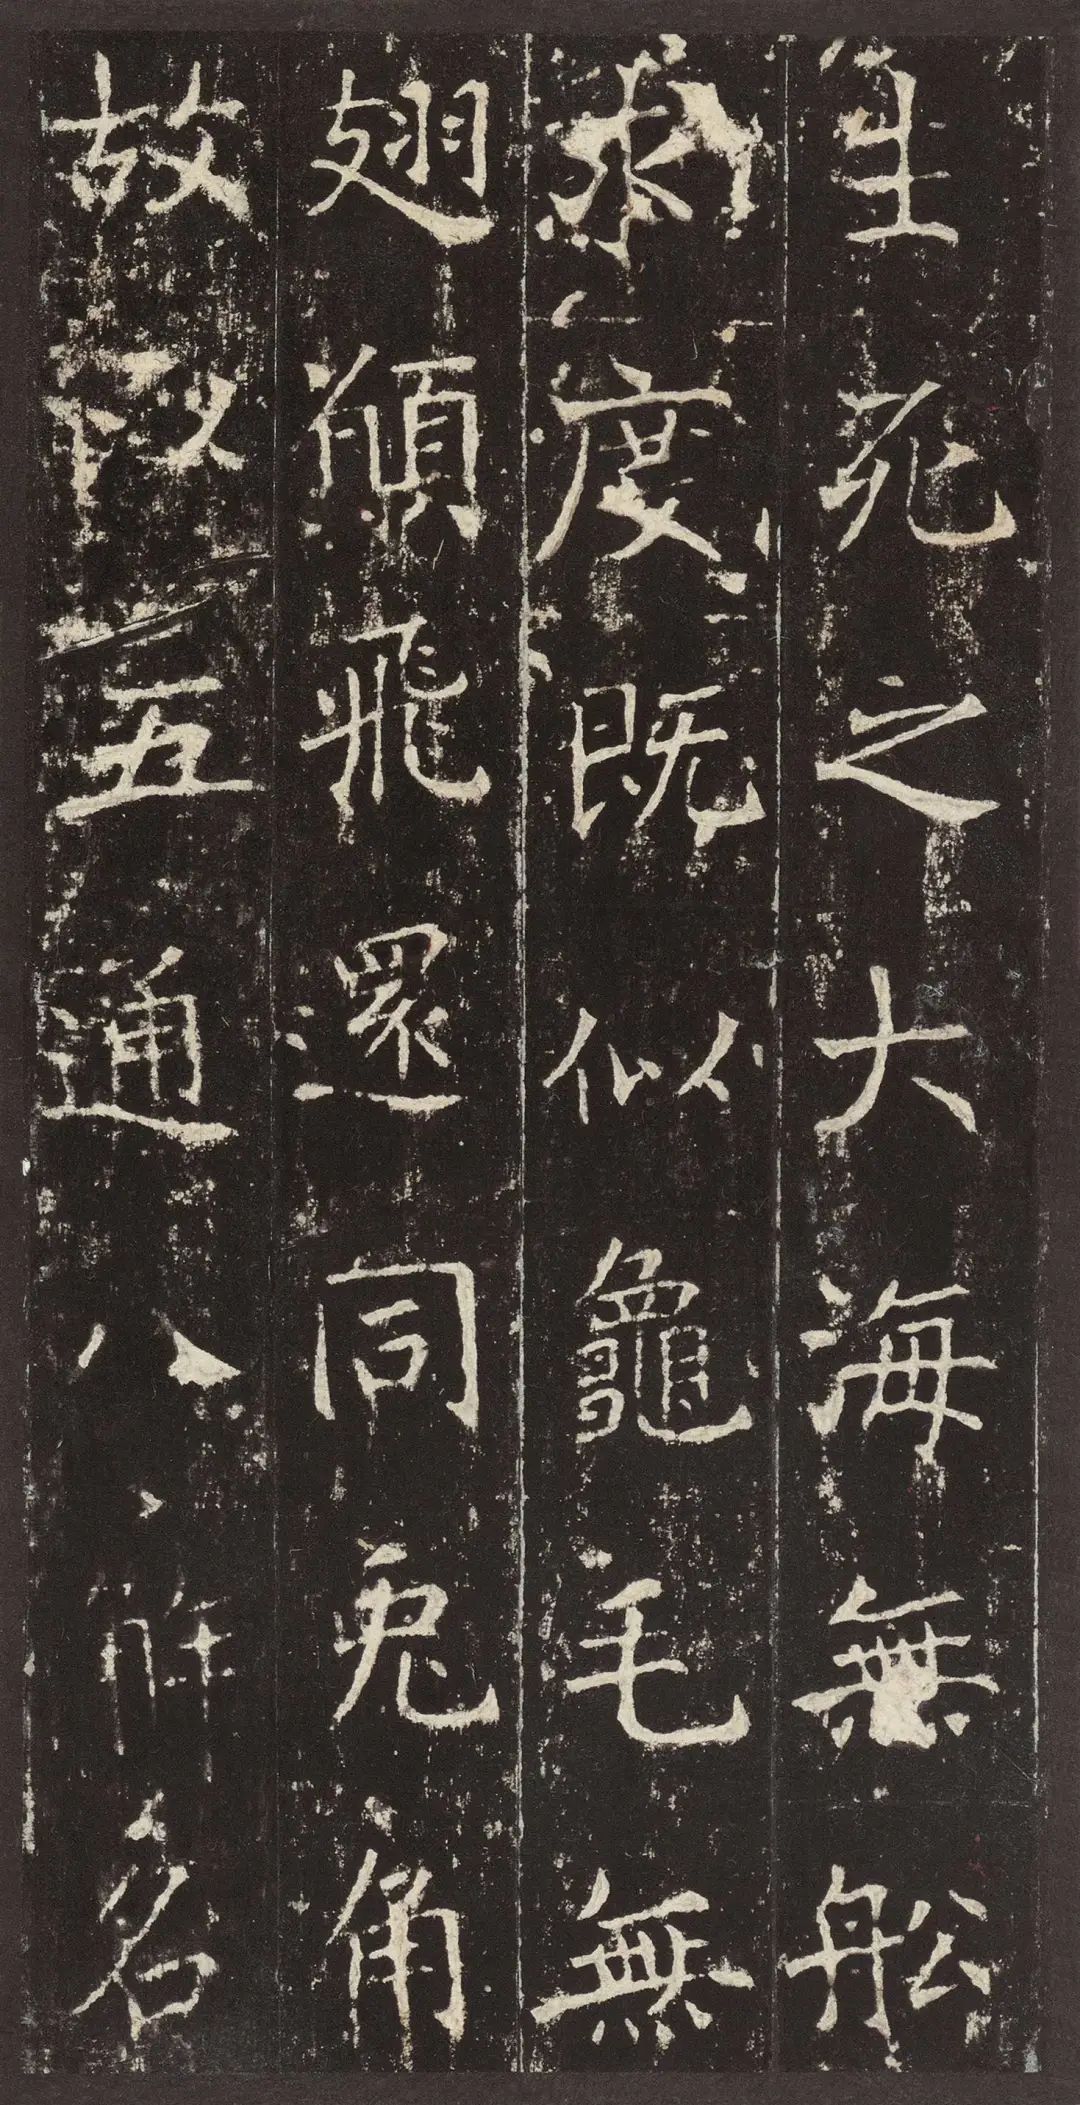 生死之大海無舩
求度既似龜毛無
翅願飛還同兔角
故以五通八解名